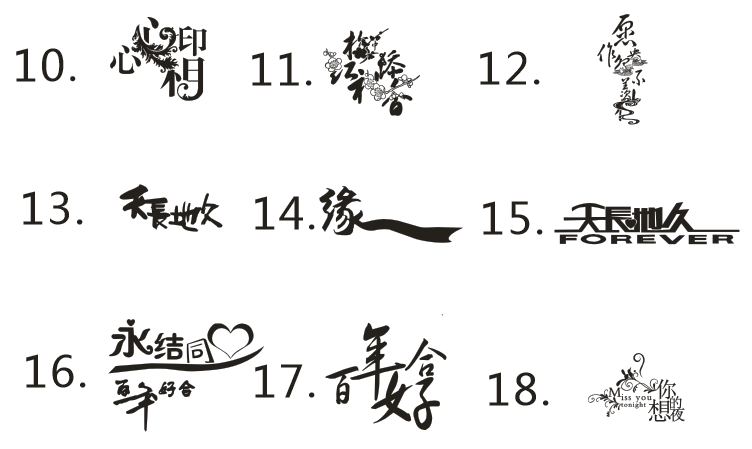 10. 心心相印
11.
12. 愿作鸳鸯不羡仙
13. 天長地久
14. 缘
15. 天長地久
FOREVER
16. 永结同
百年好合
17. 百年好合
18. Miss you
tonight
想你的夜